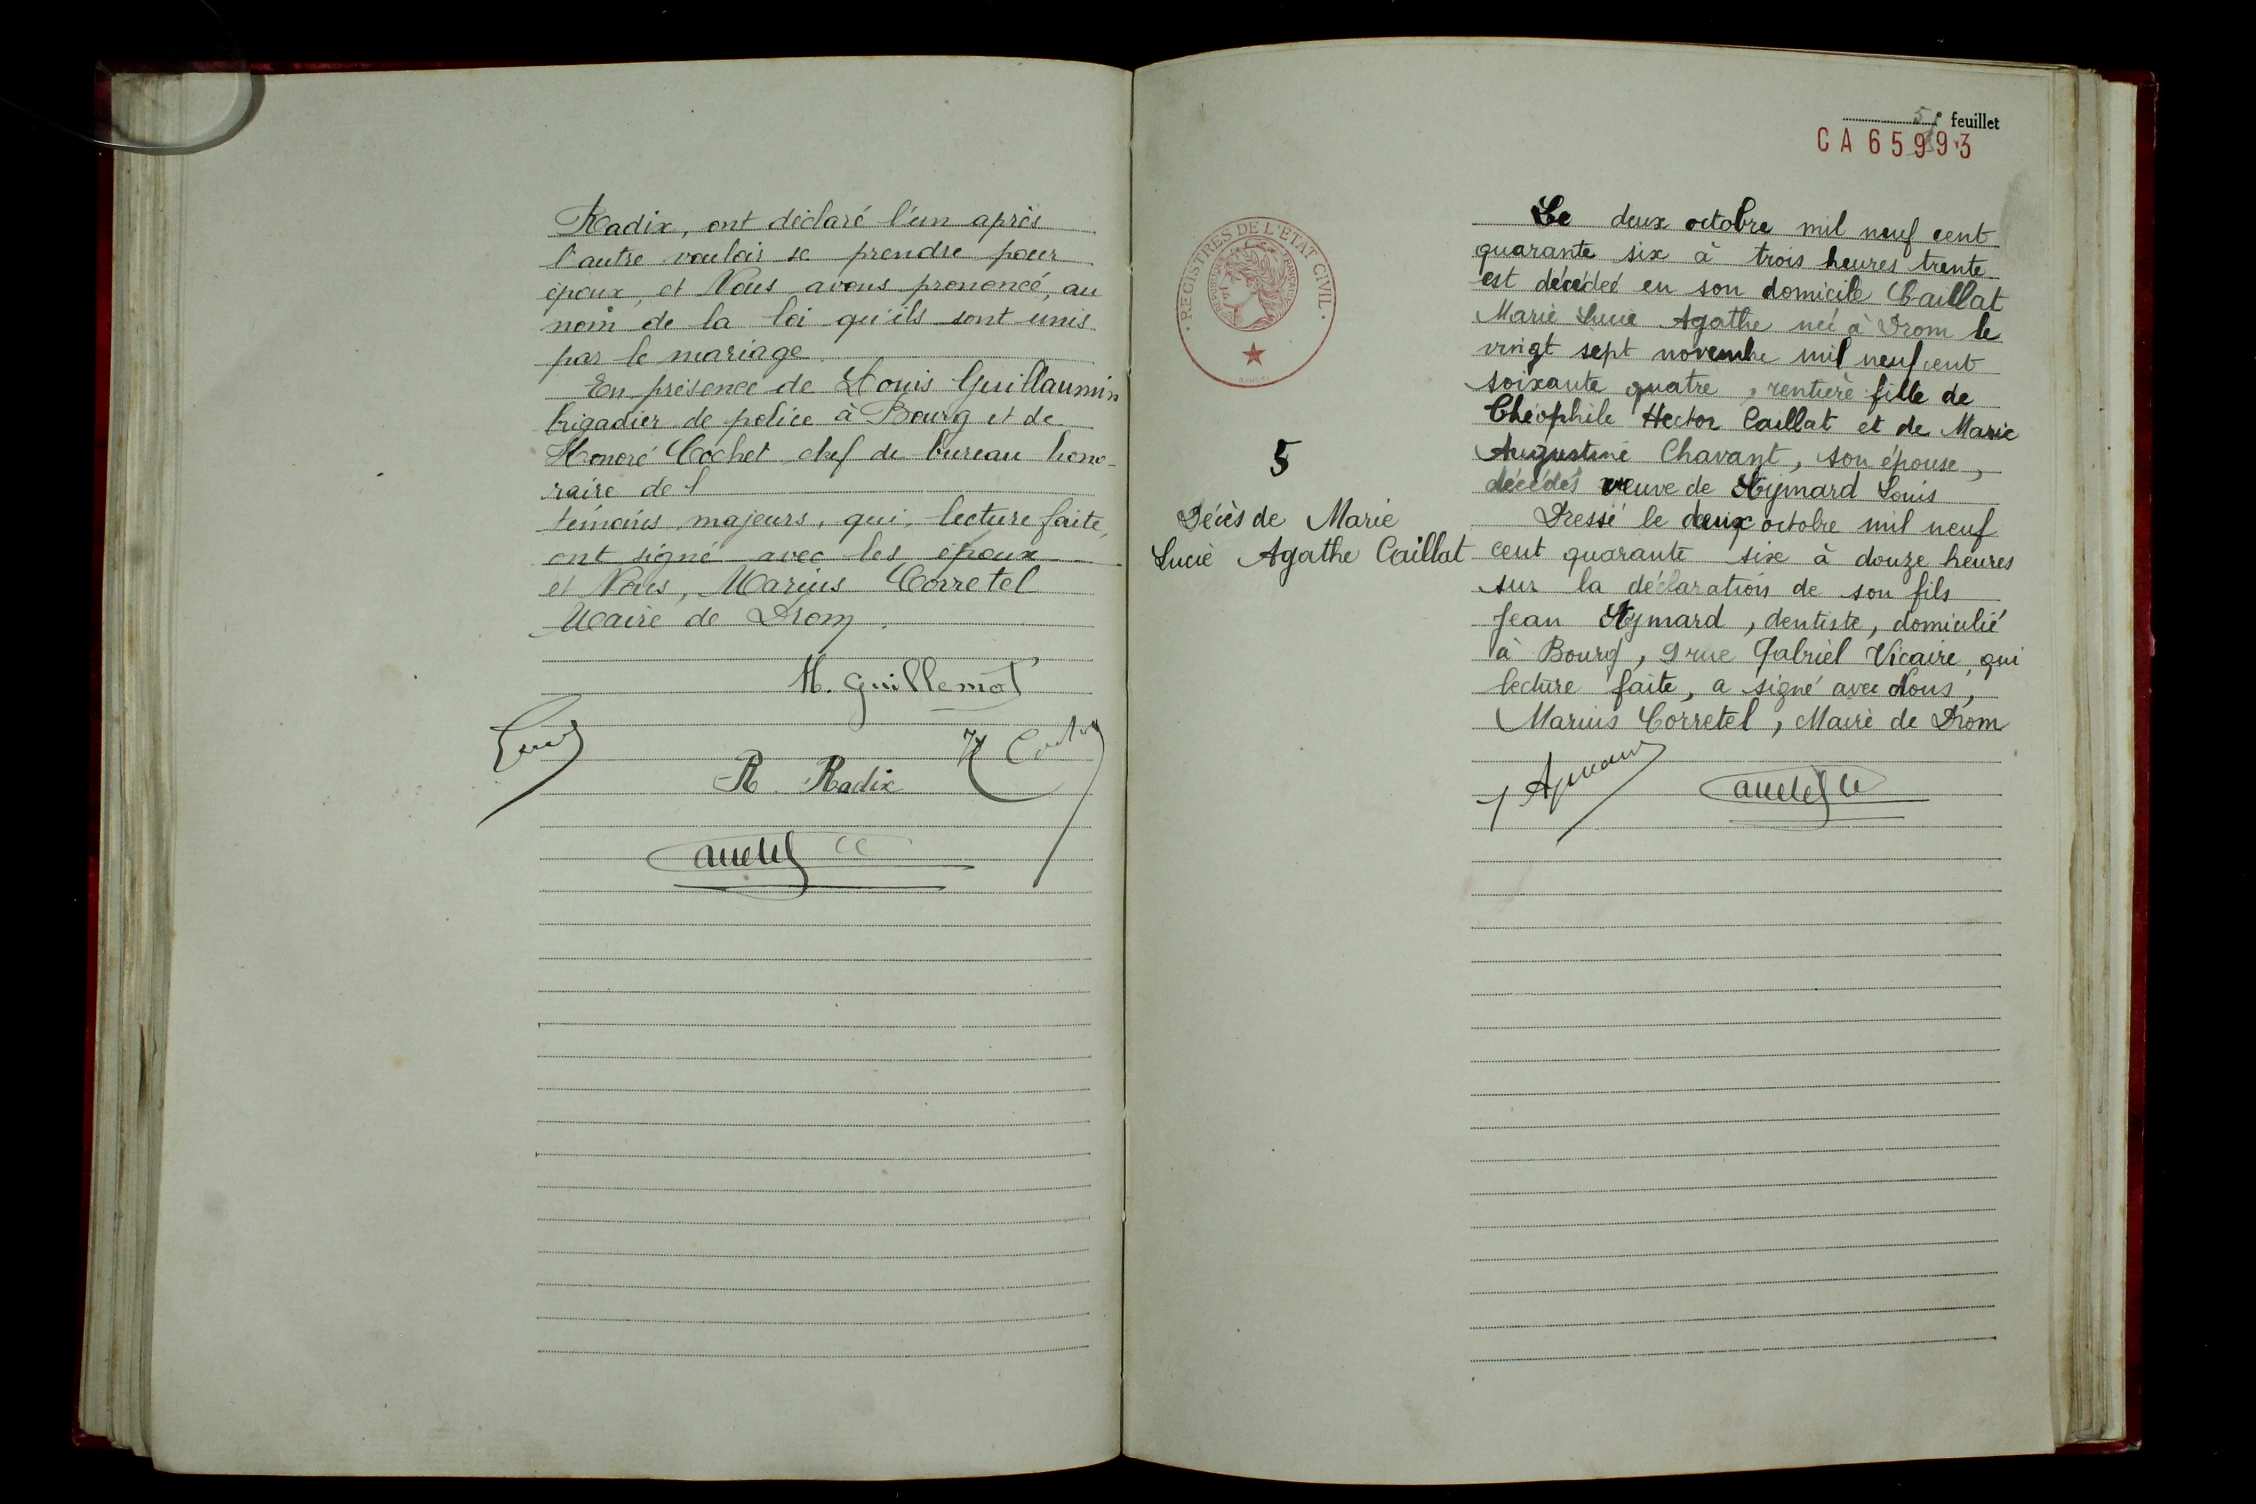 Radix, ont déclaré l'un après
l'autre vouloir se prendre pour
époux, et Nous avons prononcé, au
nom de la loi qu'ils sont unis
par le mariage
En présence de Louis Guillaumin
brigadier de police à Bourg et de
Honoré Cochet chef de bureau hono-
raire de l
témoins majeurs, qui, lecture faite,
ont signé avec les époux
et Nous, Marius Corretel
Maire de Drom.
M. Guillemot
R. Radix
feuillet
CA65993
REGISTRES DE L'ÉTAT CIVIL
5
Décès de Marie
Lucie Agathe Caillat
Le deux octobre mil neuf cent
quarante six à trois heures trente
est décédée en son domicile Caillat
Marie Lucie Agathe née à Drom le
vingt sept novembre mil neuf cent
soixante quatre, rentière fille de
Théophile Hector Caillat et de Marie
Augustine Chavant, son épouse,
décédés veuve de Aymard Louis
Dressé le deux octobre mil neuf
cent quarante six à douze heures
sur la déclaration de son fils
Jean Aymard, dentiste, domicilié
à Bourg, 9 rue Gabriel Vicaire, qui
lecture faite, a signé avec Nous,
Marius Corretel, Maire de Drom
J Aymard